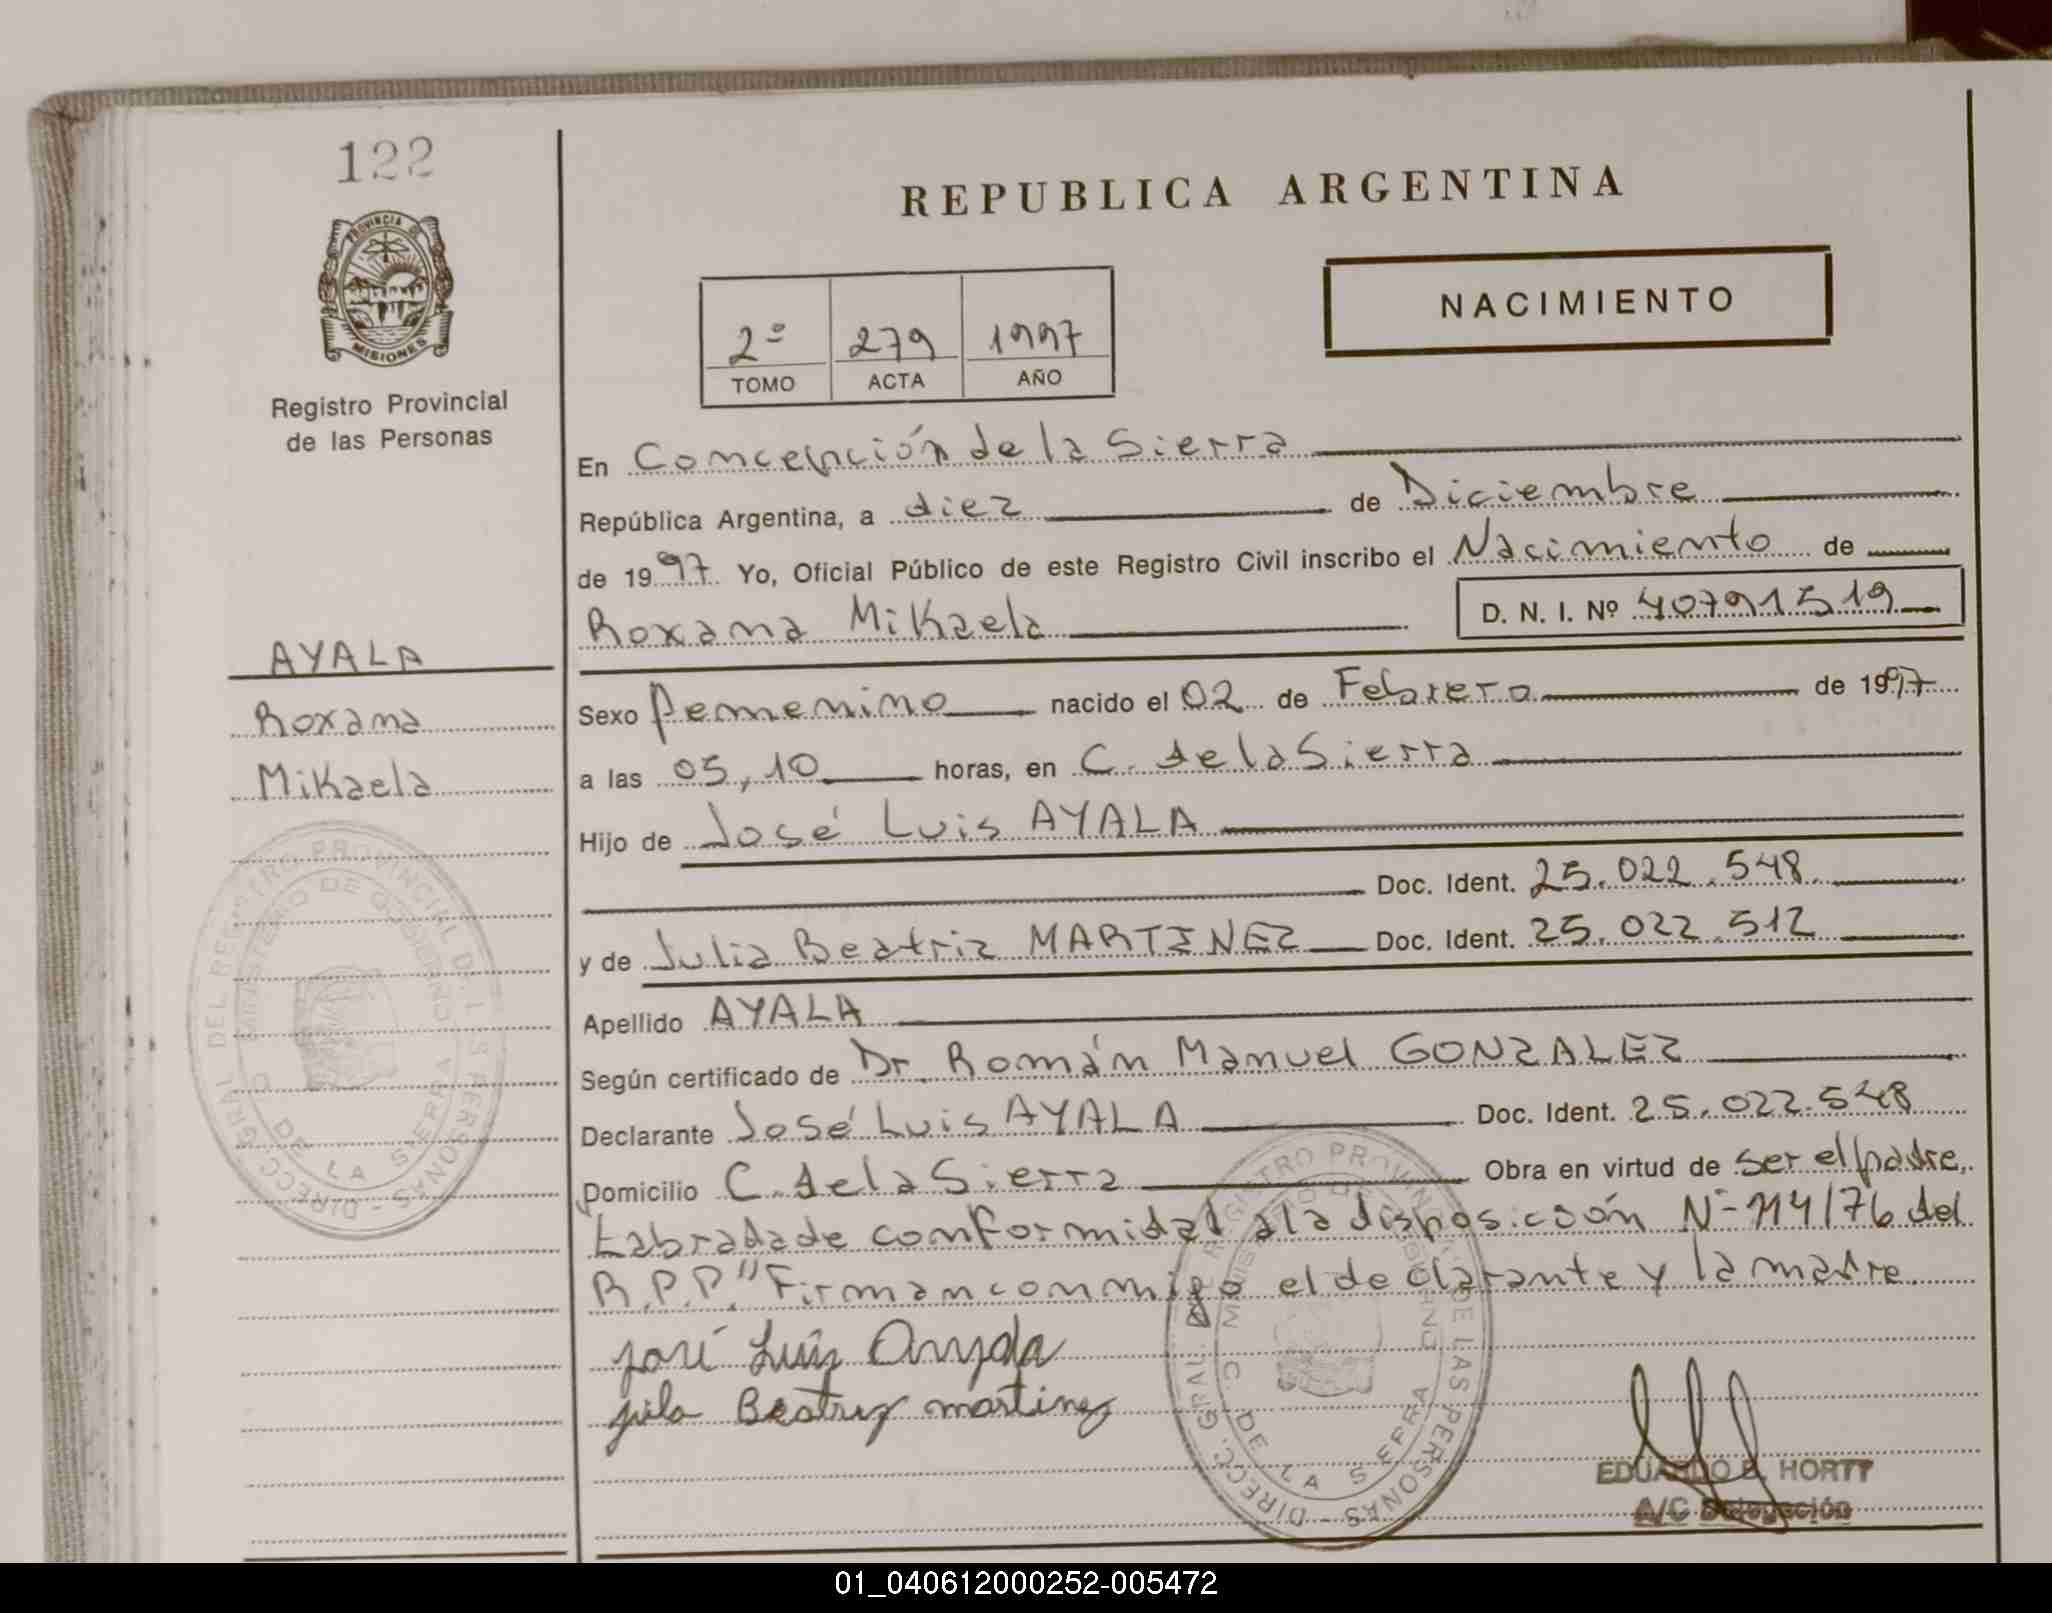 122
PROVINCIA DE
MISIONES
Registro Provincial
de las Personas
AYALA
Roxana
Mikaela
DIRECC. GRAL. DEL REGISTRO PROVINCIAL DE LAS PERSONAS
MINISTERIO DE GOBIERNO
C. DE LA SIERRA
REPUBLICA ARGENTINA
NACIMIENTO
2º 279 1997
TOMO ACTA AÑO
En Concepción de la Sierra
República Argentina, a diez de Diciembre
de 1997 Yo, Oficial Público de este Registro Civil inscribo el Nacimiento de
Roxana Mikaela D. N. I. Nº 40791519
Sexo Femenino nacido el 02 de Febrero de 1997
a las 05,10 horas, en C. de la Sierra
Hijo de José Luis AYALA
Doc. Ident. 25.022.548
y de Julia Beatriz MARTINEZ Doc. Ident. 25.022.512
Apellido AYALA
Según certificado de Dr. Román Manuel GONZALEZ
Declarante José Luis AYALA Doc. Ident. 25.022.548
Domicilio C. de la Sierra Obra en virtud de ser el padre,
Labrada de conformidad a la disposición Nº 114/76 del
R.P.P." Firman conmigo el declarante y la madre
josé Luis Ayala
julia Beatriz martinez
DIRECC. GRAL. DEL REGISTRO PROVINCIAL DE LAS PERSONAS
MINISTERIO DE GOBIERNO
C. DE LA SIERRA
EDUARDO B. HORTT
A/C Delegación
01_040612000252-005472